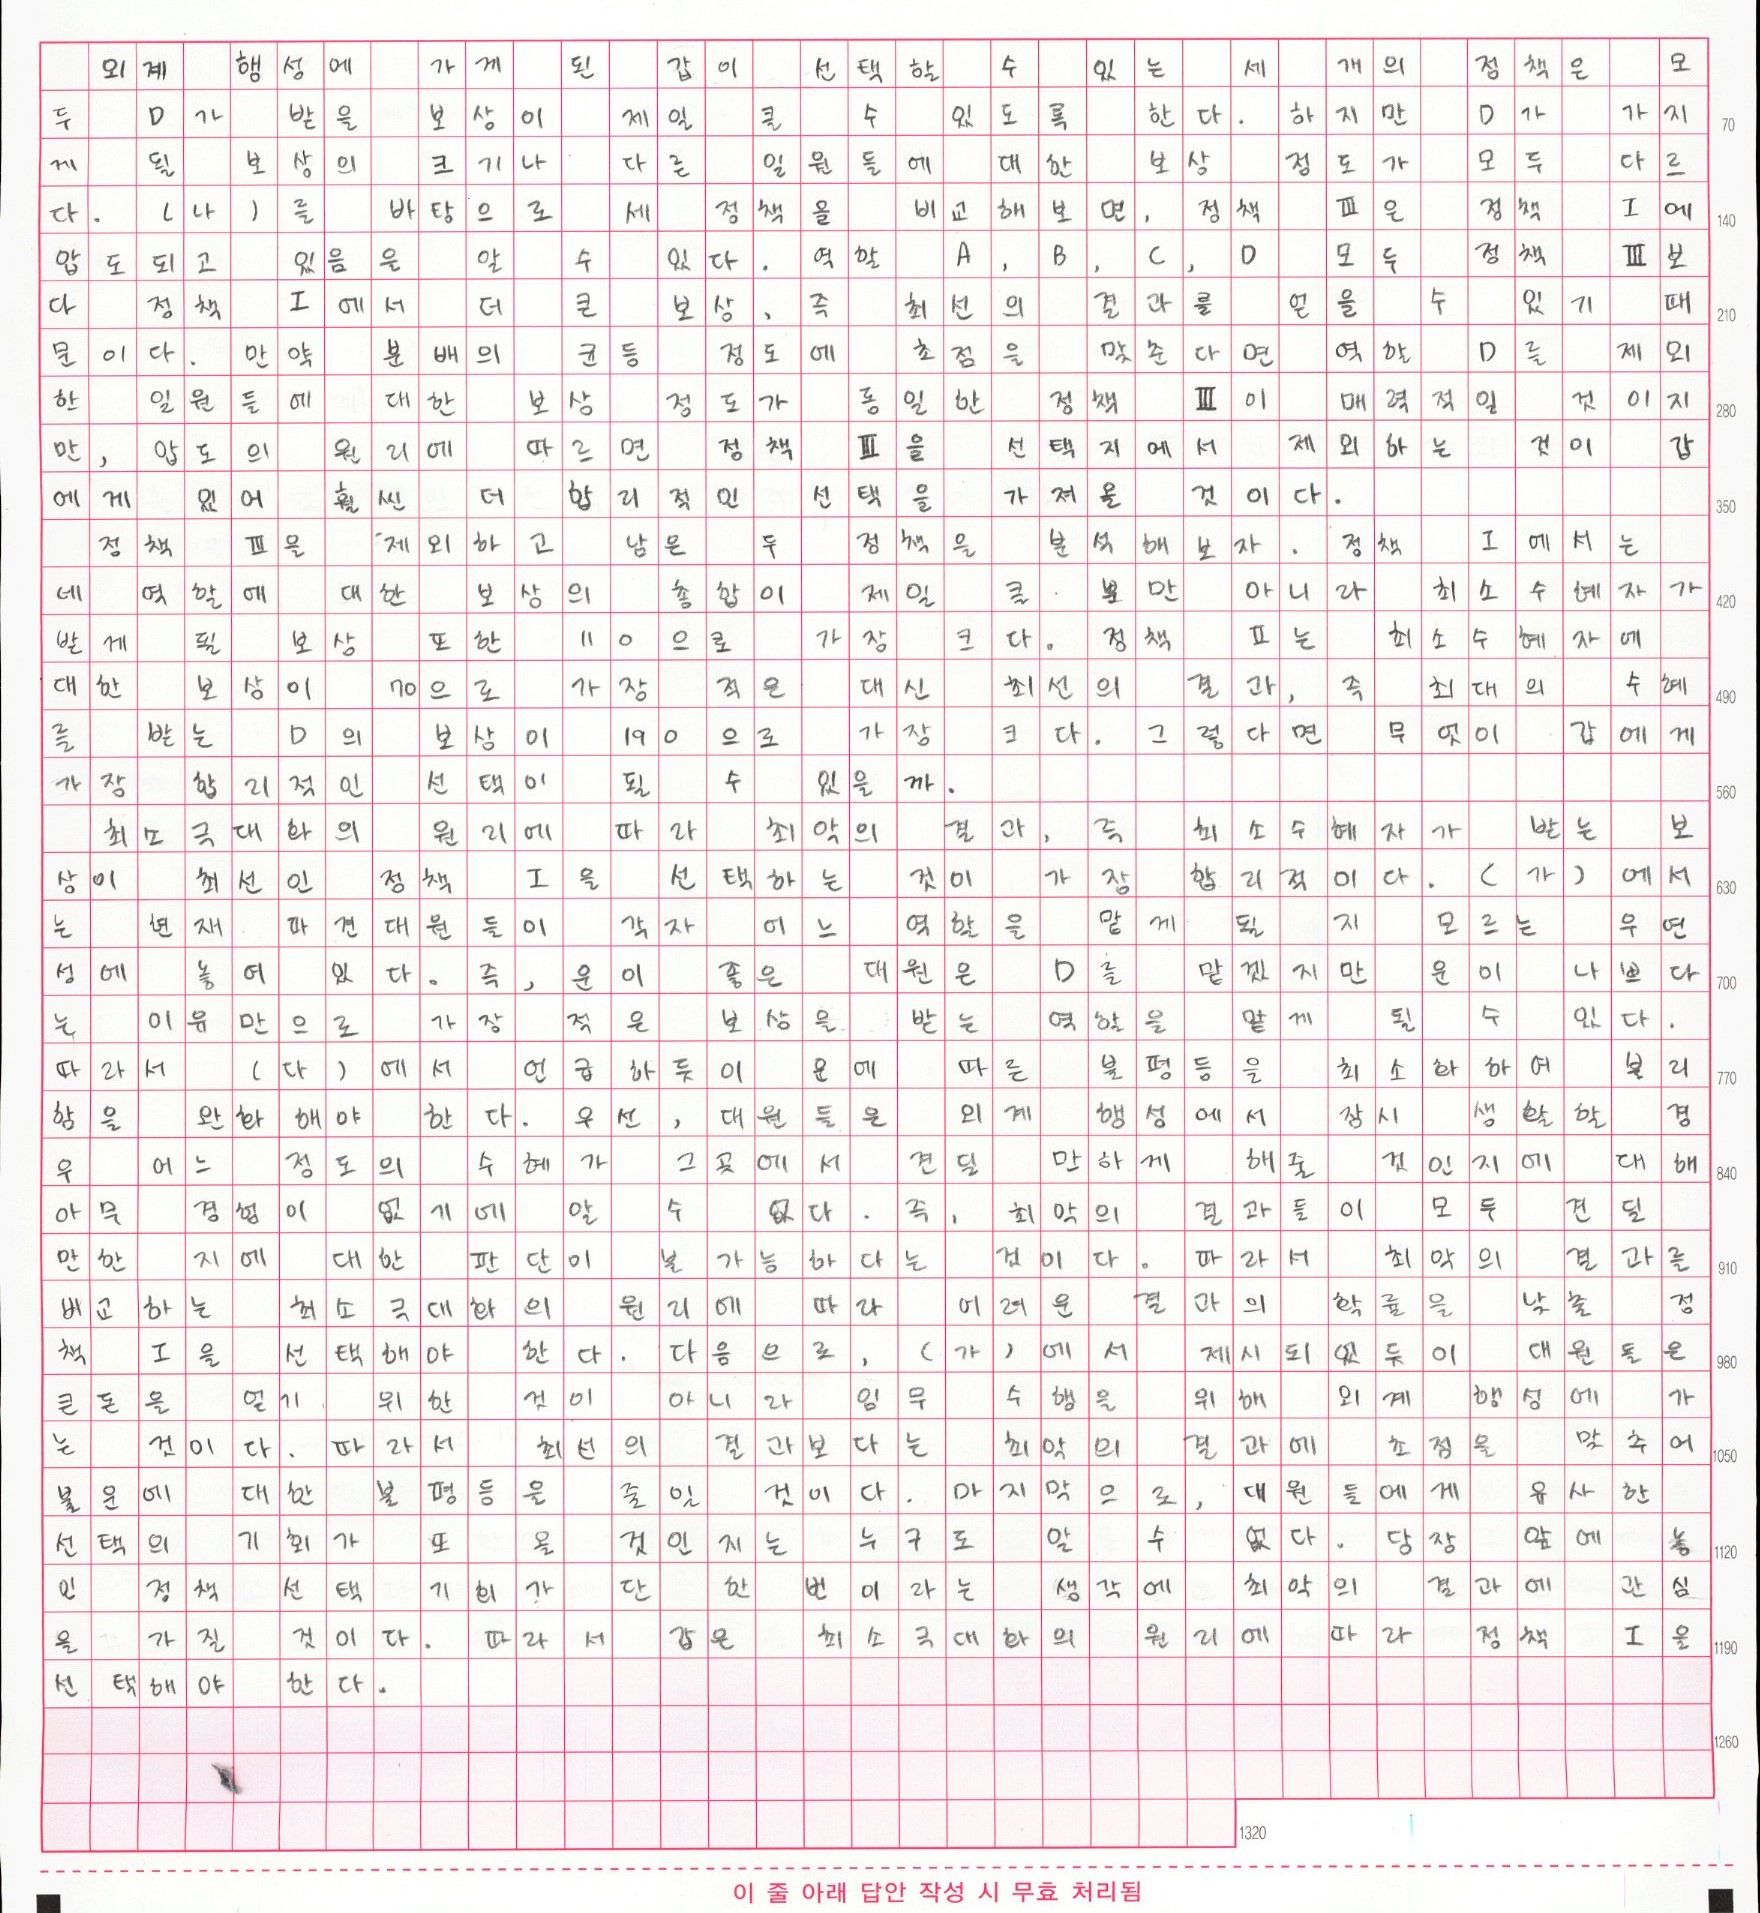 외계 행성에 가게 된 갑이 선택할 수 있는 세 개의 정책은 모
두 D가 받을 보상이 제일 클 수 있도록 한다. 하지만 D가 가지
게 될 보상의 크기나 다른 일원들에 대한 보상 정도가 모두 다르
다. (나)를 바탕으로 세 정책을 비교해보면, 정책 Ⅲ은 정책 Ⅰ에
압도되고 있음을 알 수 있다. 역할 A, B, C, D 모두 정책 Ⅲ보
다 정책 Ⅰ에서 더 큰 보상, 즉 최선의 결과를 얻을 수 있기 때
문이다. 만약 분배의 균등 정도에 초점을 맞춘다면 역할 D를 제외
한 일원들에 대한 보상 정도가 동일한 정책 Ⅲ이 매력적일 것이지
만, 압도의 원리에 따르면 정책 Ⅲ을 선택지에서 제외하는 것이 갑
에게 있어 훨씬 더 합리적인 선택을 가져올 것이다.
정책 Ⅲ을 제외하고 남은 두 정책을 분석해보자. 정책 Ⅰ에서는
네 역할에 대한 보상의 총합이 제일 클 뿐만 아니라 최소수혜자가
받게 될 보상 또한 110으로 가장 크다. 정책 Ⅱ는 최소수혜자에
대한 보상이 70으로 가장 적은 대신 최선의 결과, 즉 최대의 수혜
를 받는 D의 보상이 190으로 가장 크다. 그렇다면 무엇이 갑에게
가장 합리적인 선택이 될 수 있을까.
최소극대화의 원리에 따라 최악의 결과, 즉 최소수혜자가 받는 보
상이 최선인 정책 Ⅰ을 선택하는 것이 가장 합리적이다. (가)에서
는 현재 파견대원들이 각자 어느 역할을 맡게 될 지 모르는 우연
성에 놓여 있다. 즉, 운이 좋은 대원은 D를 맡겠지만 운이 나쁘다
는 이유만으로 가장 적은 보상을 받는 역할을 맡게 될 수 있다.
따라서 (다)에서 언급하듯이 운에 따른 불평등을 최소화하여 불리
함을 완화해야 한다. 우선, 대원들은 외계 행성에서 잠시 생활할 경
우 어느 정도의 수혜가 그곳에서 견딜 만하게 해줄 것인지에 대해
아무 경험이 없기에 알 수 없다. 즉, 최악의 결과들이 모두 견딜
만한 지에 대한 판단이 불가능하다는 것이다. 따라서 최악의 결과를
비교하는 최소극대화의 원리에 따라 어려운 결과의 확률을 낮출 정
책 Ⅰ을 선택해야 한다. 다음으로, (가)에서 제시되었듯이 대원들은
큰돈을 얻기 위한 것이 아니라 임무 수행을 위해 외계 행성에 가
는 것이다. 따라서 최선의 결과보다는 최악의 결과에 초점을 맞추어
불운에 대한 불평등을 줄일 것이다. 마지막으로, 대원들에게 유사한
선택의 기회가 또 올 것인지는 누구도 알 수 없다. 당장 앞에 놓
인 정책 선택 기회가 단 한 번이라는 생각에 최악의 결과에 관심
을 가질 것이다. 따라서 갑은 최소극대화의 원리에 따라 정책 Ⅰ을
선택해야 한다.
70
140
210
280
350
420
490
560
630
700
770
840
910
980
1050
1120
1190
1260
1320
이 줄 아래 답안 작성 시 무효 처리됨